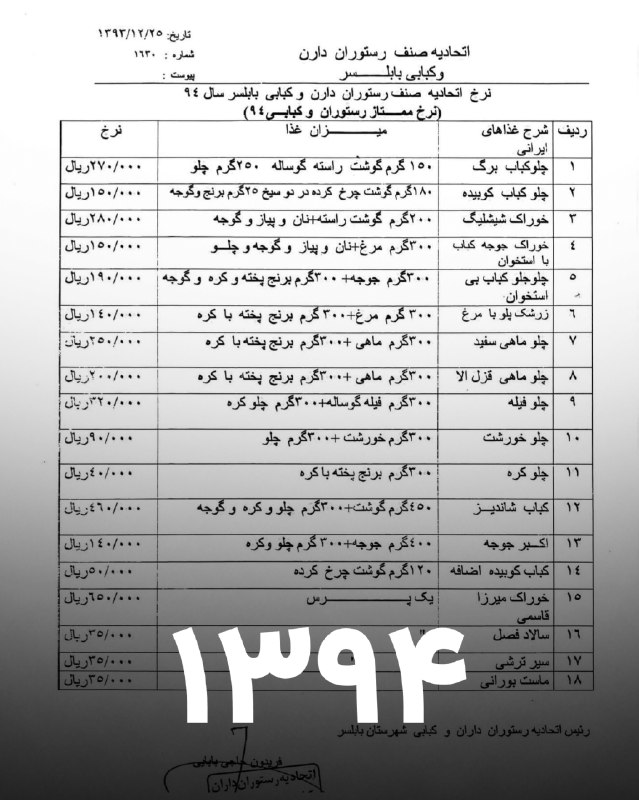 تاریخ: ۱۳۹۳/۱۲/۲۵
شماره : ۱۶۳۰
پیوست :
اتحادیه صنف رستوران دارن
وکبابی بابلسر
نرخ اتحادیه صنف رستوران دارن و کبابی بابلسر سال ۹۴
(نرخ ممتاز رستوران و کبابی۹۴)
ردیف شرح غذاهای ایرانی میزان غذا نرخ
۱ چلوکباب برگ ۱۵۰ گرم گوشت راسته گوساله ۲۵۰گرم چلو ۲۷۰/۰۰۰ریال
۲ چلو کباب کوبیده ۱۸۰گرم گوشت چرخ کرده در دو سیخ ۲۵گرم برنج وگوجه ۱۵۰/۰۰۰ریال
۳ خوراک شیشلیگ ۲۰۰گرم گوشت راسته+نان و پیاز و گوجه ۲۸۰/۰۰۰ریال
۴ خوراک جوجه کباب با استخوان ۳۰۰گرم مرغ+نان و پیاز و گوجه و چلو ۱۵۰/۰۰۰ریال
۵ چلوجلو کباب بی استخوان ۳۰۰گرم جوجه+ ۳۰۰گرم برنج پخته و کره و گوجه ۱۹۰/۰۰۰ریال
۶ زرشک پلو با مرغ ۳۰۰ گرم مرغ+۳۰۰ گرم برنج پخته با کره ۱۴۰/۰۰۰ریال
۷ چلو ماهی سفید ۳۰۰گرم ماهی +۳۰۰گرم برنج پخته با کره ۲۵۰/۰۰۰ریال
۸ چلو ماهی قزل الا ۳۰۰گرم ماهی +۳۰۰گرم برنج پخته با کره ۲۰۰/۰۰۰ریال
۹ چلو فیله ۳۰۰گرم فیله گوساله+۳۰۰گرم چلو کره ۳۲۰/۰۰۰ریال
۱۰ چلو خورشت ۳۰۰گرم خورشت +۳۰۰گرم چلو ۹۰/۰۰۰ریال
۱۱ چلو کره ۳۰۰گرم برنج پخته با کره ۴۰/۰۰۰ریال
۱۲ کباب شاندیز ۴۵۰گرم گوشت+۳۰۰گرم چلو و کره و گوجه ۴۶۰/۰۰۰ریال
۱۳ اکبر جوجه ۴۰۰گرم جوجه+۳۰۰ گرم چلو وکره ۱۴۰/۰۰۰ریال
۱۴ کباب کوبیده اضافه ۱۲۰گرم گوشت چرخ کرده ۵۰/۰۰۰ریال
۱۵ خوراک میرزا قاسمی یک پرس ۶۵۰/۰۰۰ریال
۱۶ سالاد فصل ۳۵/۰۰۰ریال
۱۷ سیر ترشی ۳۵/۰۰۰ریال
۱۸ ماست بورانی ۳۵/۰۰۰ریال
۱۳۹۴
رئیس اتحادیه رستوران داران و کبابی شهرستان بابلسر
فریدون حاجی بابایی
اتحادیه رستوران داران